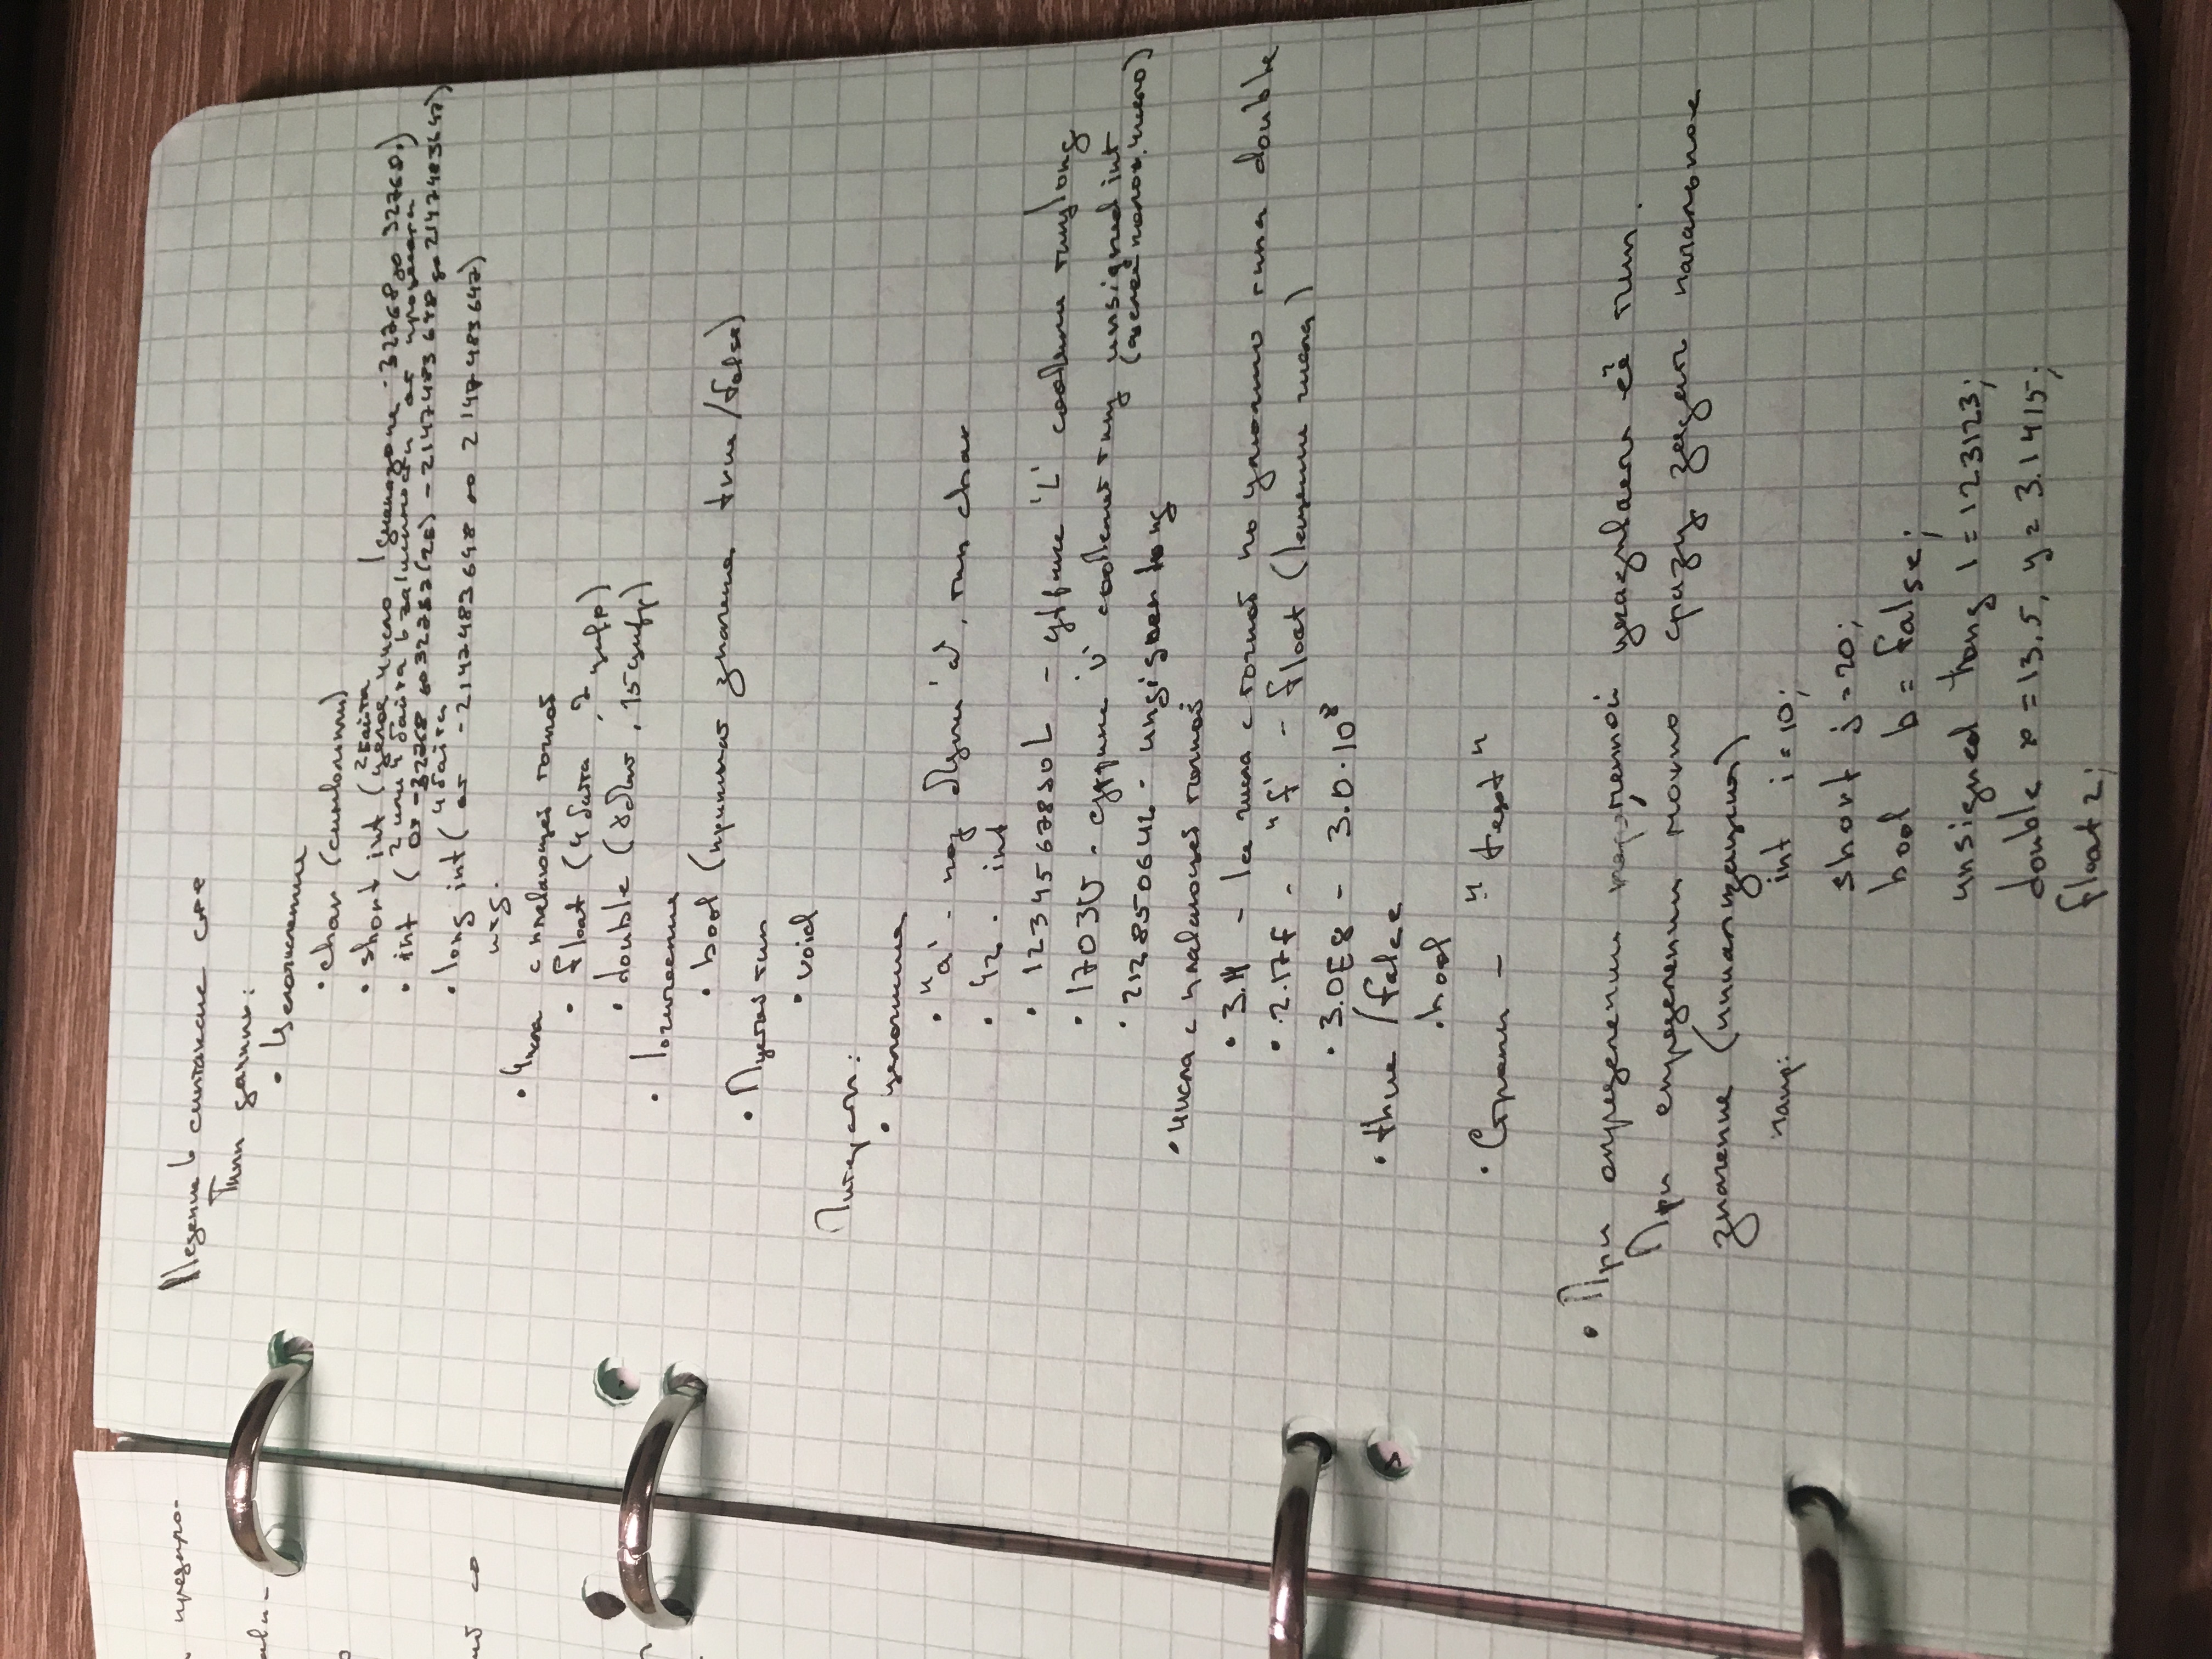 предпро-
в синтаксис cpp
Типы данных:
• Целочисленные
• char (символьный)
• short int (2 байта целое число в диапазоне -32768 до 32768.)
• int (2 или 4 байта в зависимости от
от -32768 до 32767(2Б) -2147483648 до 2147483647)
• long int (4 байта от -2147483648 до 2147483647)
итд.
• Числа с плавающей точкой
• float (4 байта, 7 цифр)
• double (8 байт, 15 цифр)
• логические
• bool (принимает значения true/false)
• Пустой тип
• void
Литералы:
•
• "a' - код буквы 'a', тип char
• 42 - int
• 1234567890L - суффикс 'L' типу long
• 1703U - суффикс 'U' типу unsigned int
(целое полож. число)
• - long
• Числа с плавающей точкой
• 3.14 - все числа с точкой по типа double
• 2.17f - "f' - float (числа)
• 3.0E8 - 3.0·10⁸
• thue/false
• bool
• Строки - "text"
• При определении переменной указываем её тип.
При определении можно сразу задать начальное
значение (инициализация)
напр: int i = 10;
short j = 20;
bool b = false;
unsigned long l = 123123;
double x = 13.5, y = 3.1415;
float z;